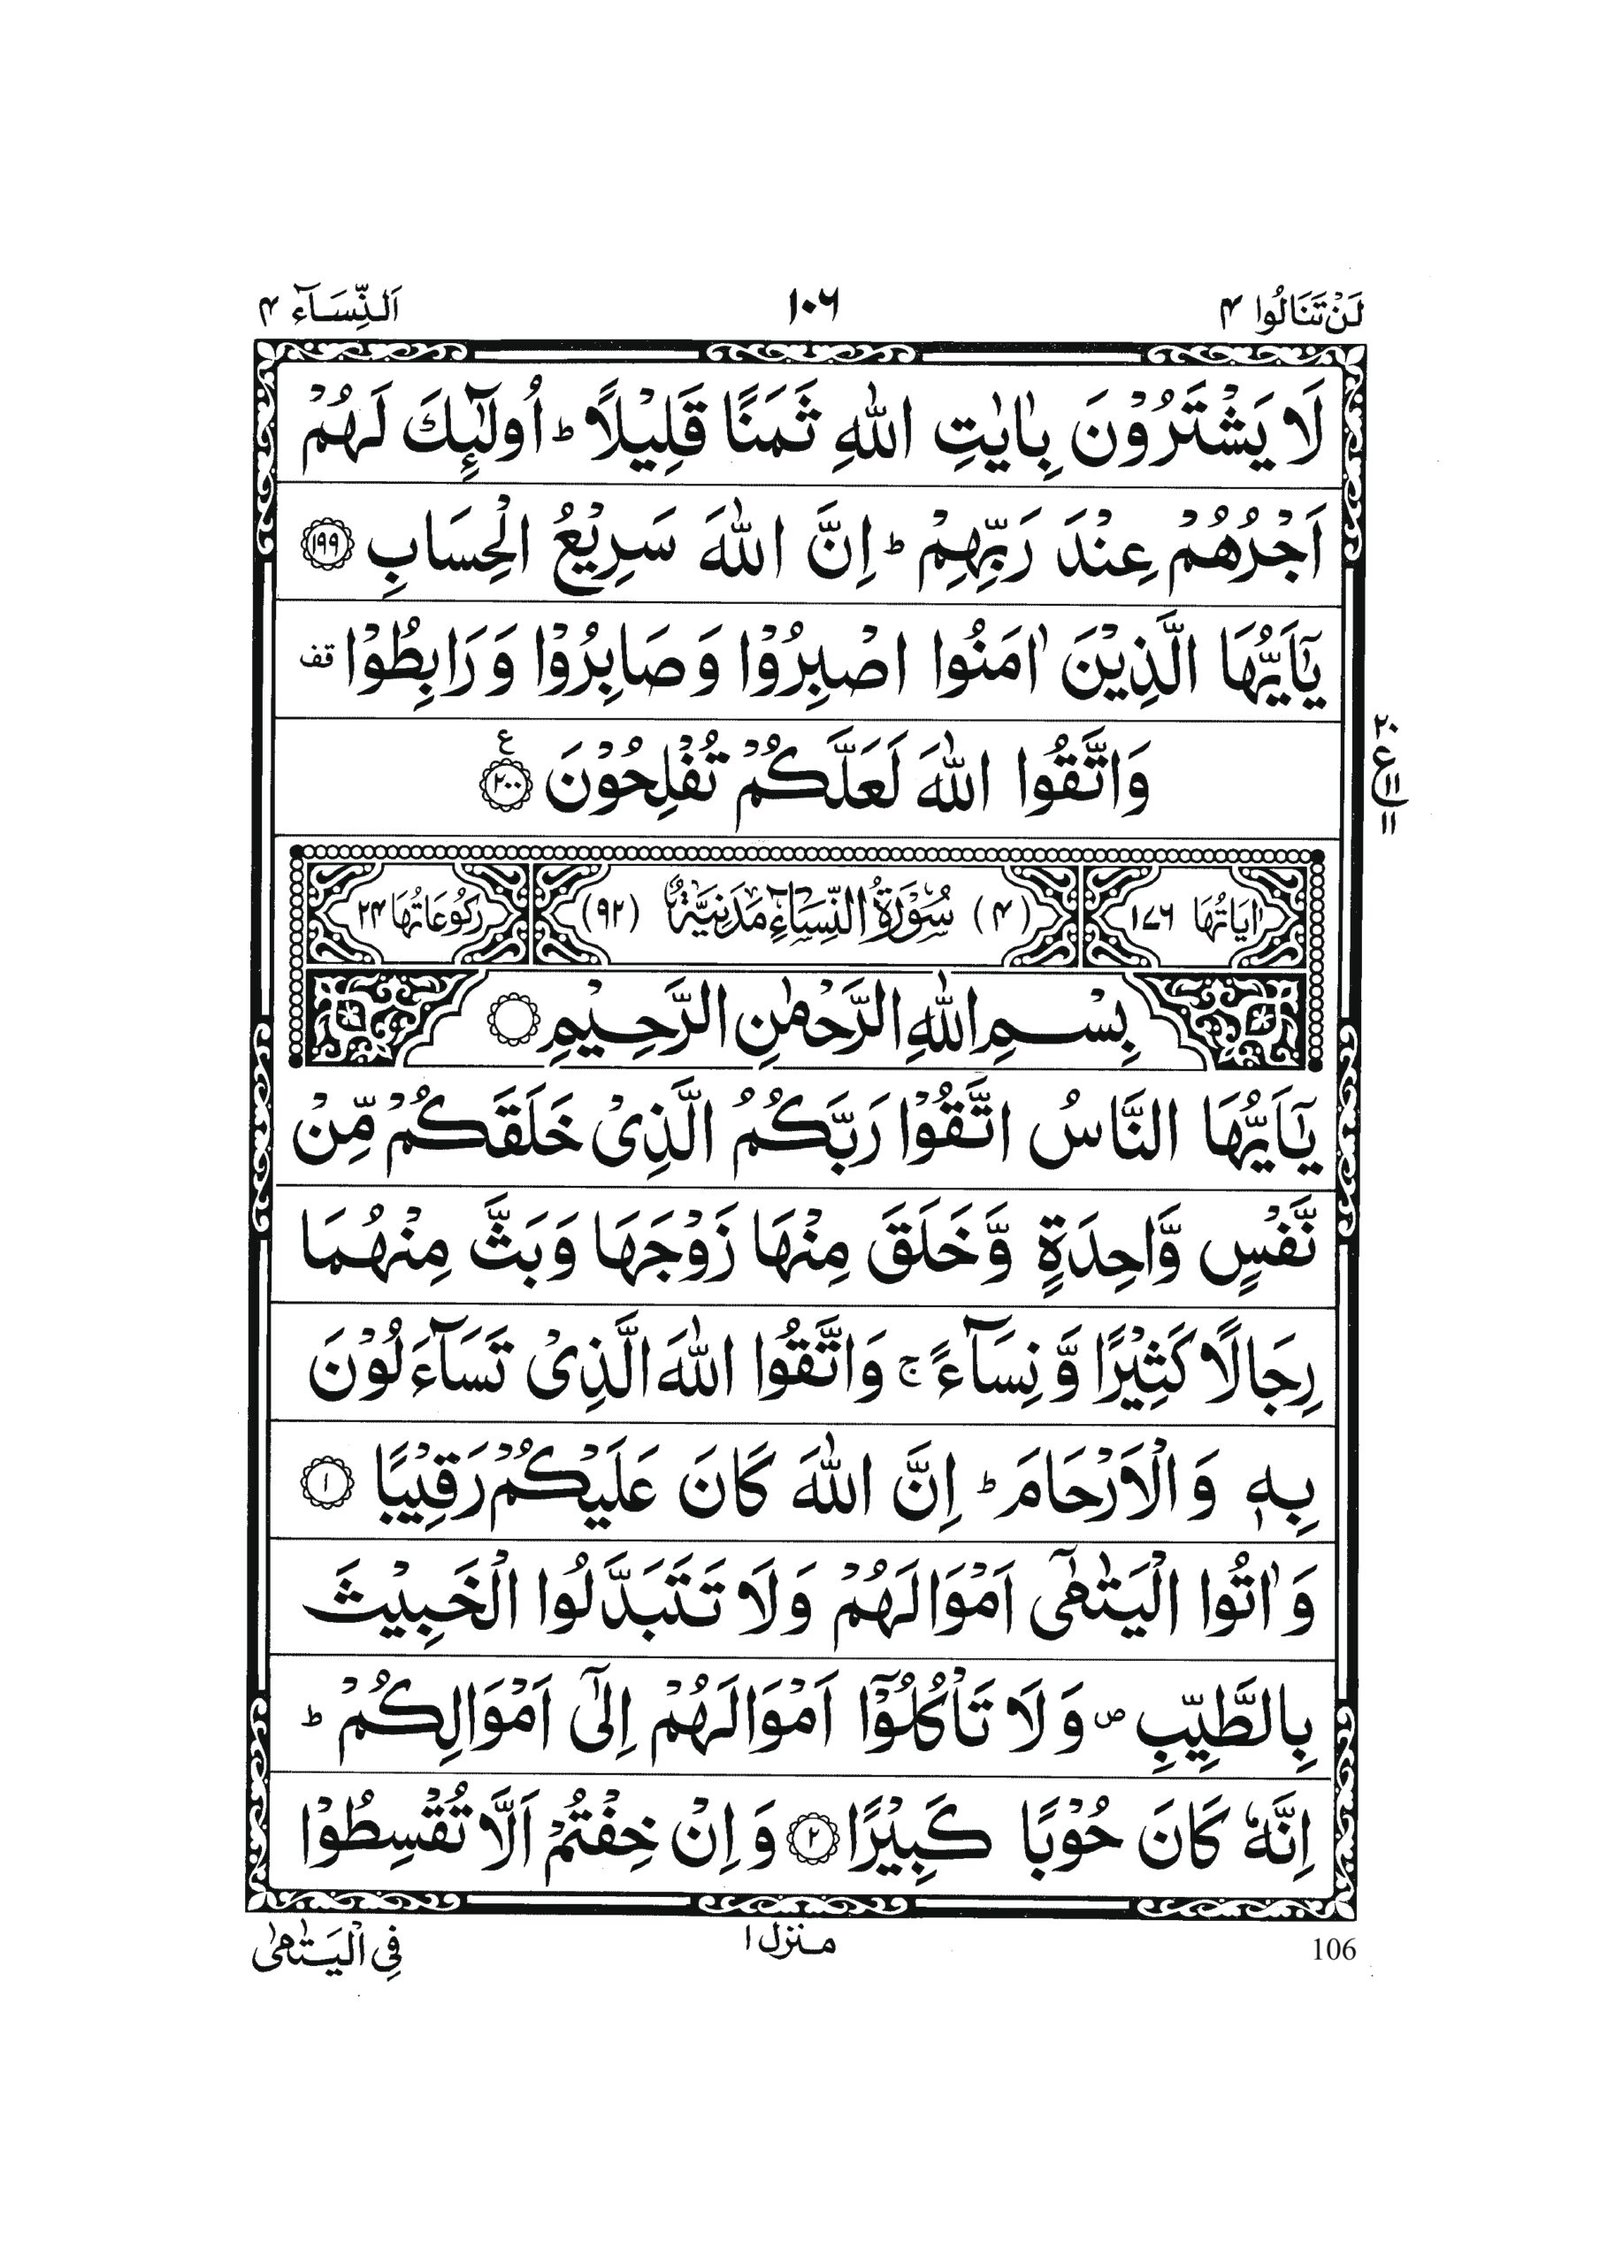 لَنْ تَنَالُوا ۴
۱۰۶
اَلنِّسَآء ۴
لَا يَشْتَرُوْنَ بِاٰيٰتِ اللّٰهِ ثَمَنًا قَلِيْلًا ؕ اُولٰٓئِكَ لَهُمْ
اَجْرُهُمْ عِنْدَ رَبِّهِمْ ؕ اِنَّ اللّٰهَ سَرِيْعُ الْحِسَابِ ۱۹۹
يٰۤاَيُّهَا الَّذِيْنَ اٰمَنُوا اصْبِرُوْا وَصَابِرُوْا وَرَابِطُوْا قف
وَاتَّقُوا اللّٰهَ لَعَلَّكُمْ تُفْلِحُوْنَ ۲۰۰ ع
۲۰
ع ۱۱
۱۱
اٰيَاتُهَا ۱۷۶
(۴) سُوْرَةُ النِّسَآءِ مَدَنِيَّةٌ (۹۲)
رُكُوْعَاتُهَا ۲۴
بِسْمِ اللّٰهِ الرَّحْمٰنِ الرَّحِيْمِ
يٰۤاَيُّهَا النَّاسُ اتَّقُوْا رَبَّكُمُ الَّذِىْ خَلَقَكُمْ مِّنْ
نَّفْسٍ وَّاحِدَةٍ وَّخَلَقَ مِنْهَا زَوْجَهَا وَبَثَّ مِنْهُمَا
رِجَالًا كَثِيْرًا وَّنِسَآءً ۚ وَاتَّقُوا اللّٰهَ الَّذِىْ تَسَآءَلُوْنَ
بِهٖ وَالْاَرْحَامَ ؕ اِنَّ اللّٰهَ كَانَ عَلَيْكُمْ رَقِيْبًا ۱
وَاٰتُوا الْيَتٰمٰٓى اَمْوَالَهُمْ وَلَا تَتَبَدَّلُوا الْخَبِيْثَ
بِالطَّيِّبِ ص وَلَا تَاْكُلُوْۤا اَمْوَالَهُمْ اِلٰٓى اَمْوَالِكُمْ ؕ
اِنَّهٗ كَانَ حُوْبًا كَبِيْرًا ۲ وَاِنْ خِفْتُمْ اَلَّا تُقْسِطُوْا
فِى الْيَتٰمٰى
منزل ۱
106